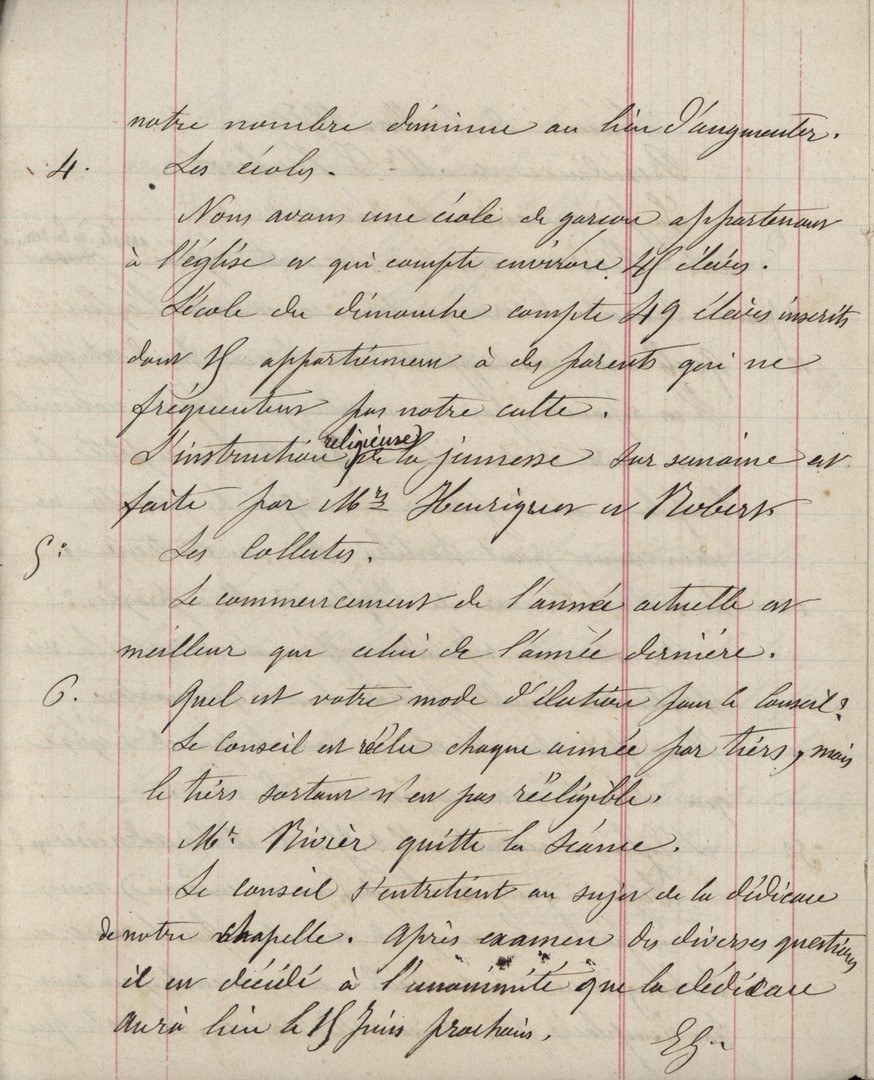 notre nombre diminue au lieu d'augmenter.
4. Les écoles.
Nous avons une école de garcon appartenant
à l'église et qui compte environ 45 élèves.
L'école du dimanche compte 49 élèves inscrits
dont 15 appartiennent à des parents qui ne
fréquentent pas notre culte.
L'instruction religieuse de la jeunesse sur semaine est
faite par Mrs Henriquet et Robert
5: Les Collectes.
Le commencement de l'année actuelle est
meilleur que celui de l'année dernière.
6. Quel est votre mode d'élection pour le Conseil?
Le Conseil est réélu chaque année par tiers, mais
le tiers sortant n'est pas rééligible.
Mr. Rivièr quitte la séance.
Le conseil s'entretient au sujet de la dédicace
de notre chapelle. Après examen des diverses questions
il est décidé à l'unanimité que la dédicace
aura lieu le 15 Juin prochain.